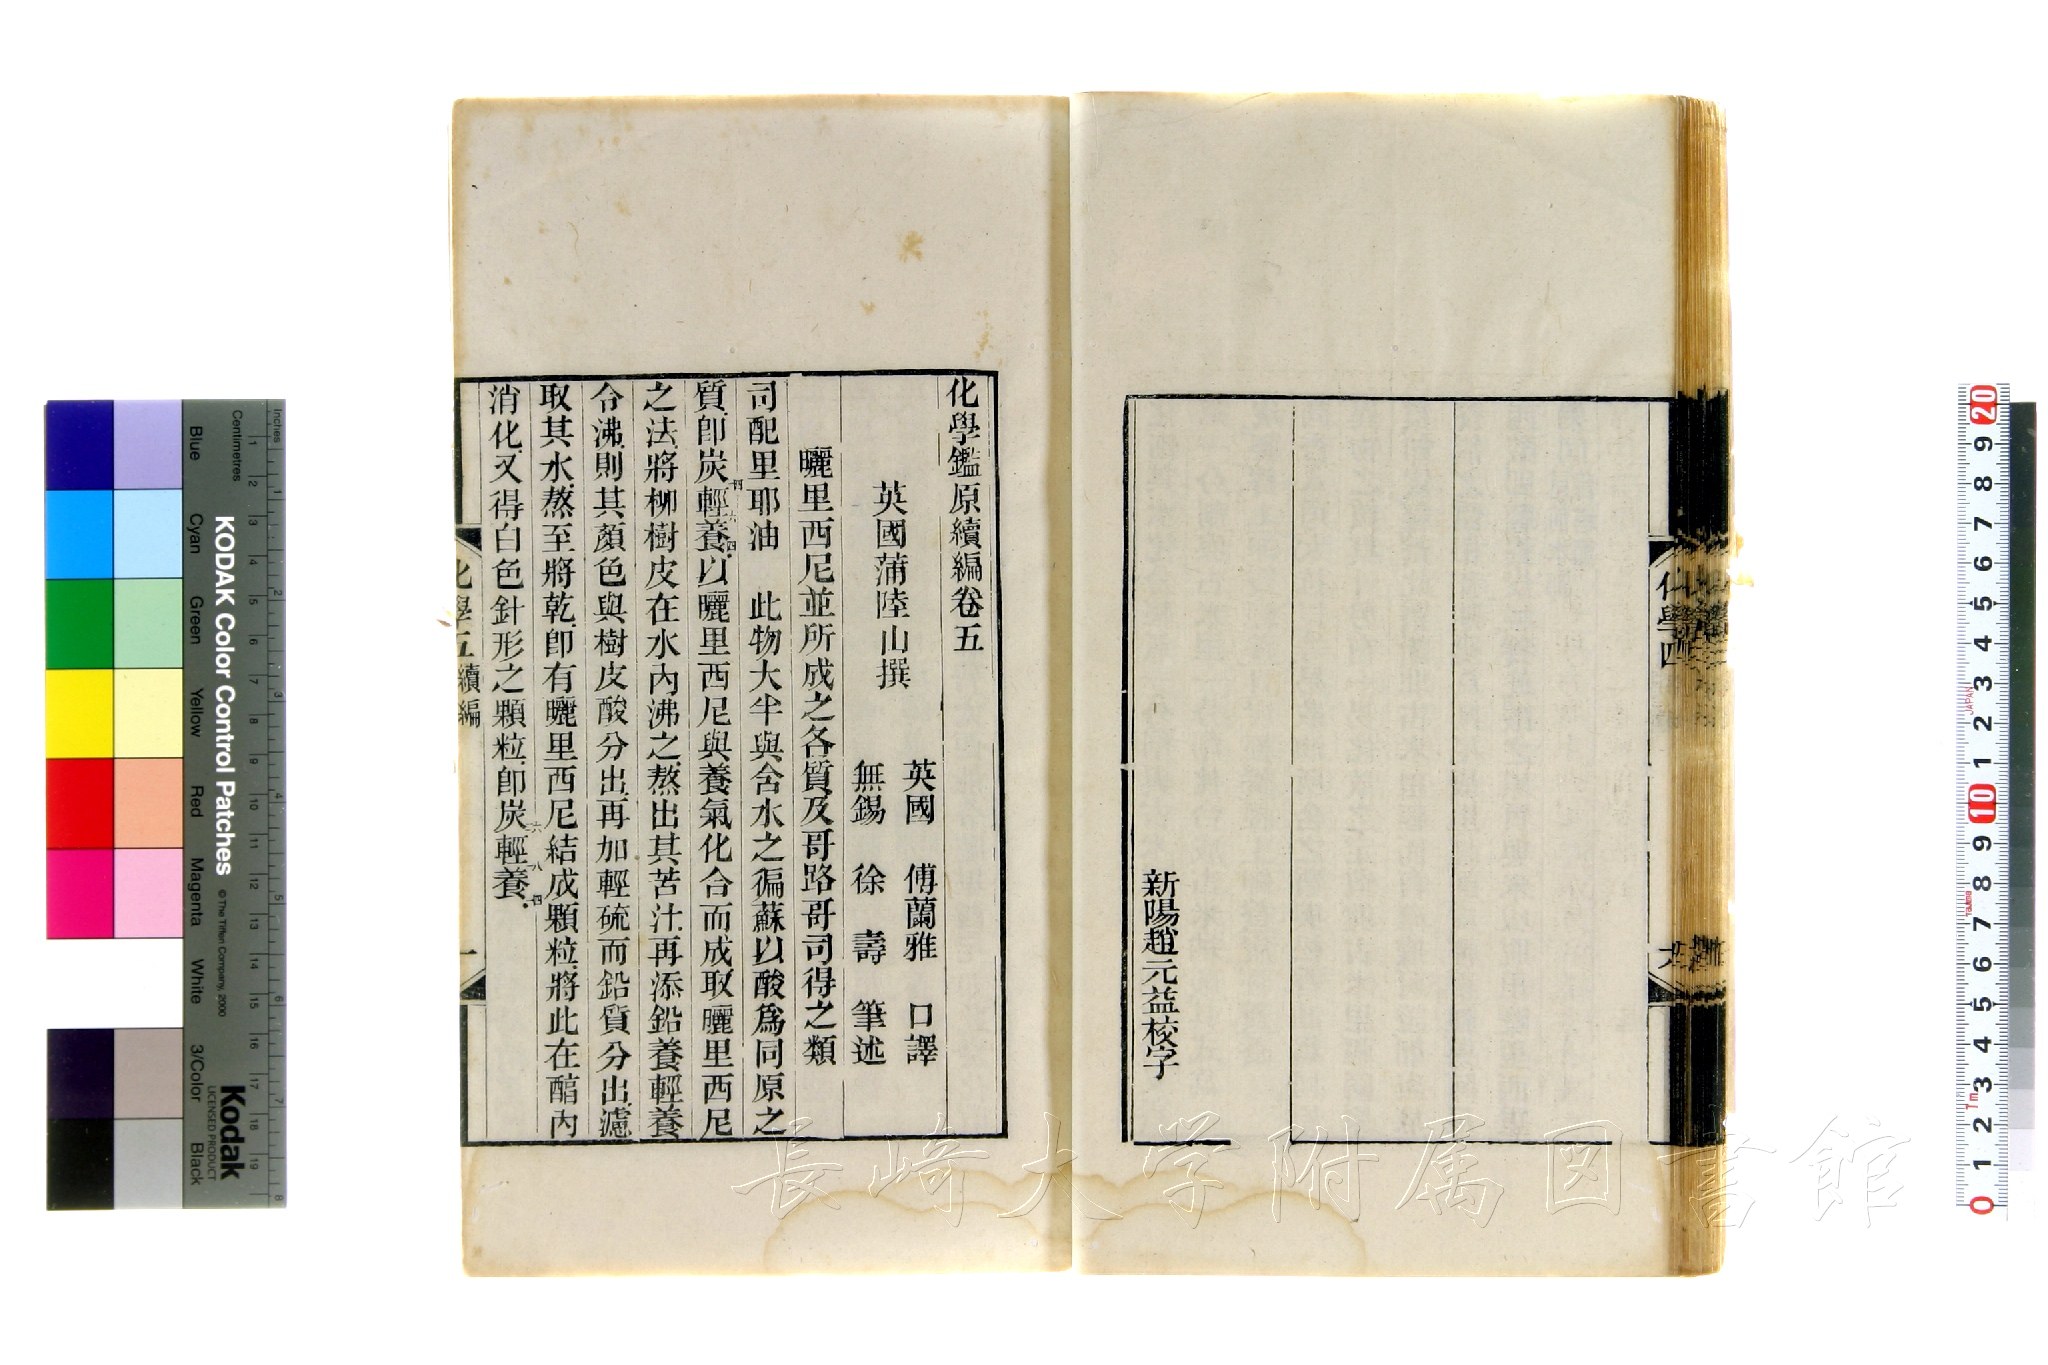 新陽趙元益校字
化學四
化學鑑原續編卷五
英國蒲陸山撰
英國　傅蘭雅　口譯
無錫　徐　壽　筆述
曬里西尼並所成之各質及哥路哥司得之類
司配里耶油　此物大半與含水之徧蘇以酸爲同原之
質卽炭輕養以曬里西尼與養氣化合而成取曬里西尼
之法將柳樹皮在水內沸之熬出其苦汁再添鉛養輕養
令沸則其顏色與樹皮酸分出再加輕硫而鉛質分出濾
取其水熬至將乾卽有曬里西尼結成顆粒將此在醕內
消化又得白色針形之顆粒卽炭輕養
化學五 續編
一
長崎大学附属図書館
KODAK Color Control Patches
© The Tiffen Company, 2000
Kodak
LICENSED PRODUCT
Inches
Centimetres
Blue
Cyan
Green
Yellow
Red
Magenta
White
3/Color
Black
1 2 3 4 5 6 7 8
1 2 3 4 5 6 7 8 9 10 11 12 13 14 15 16 17 18 19
0 1 2 3 4 5 6 7 8 9 10 1 2 3 4 5 6 7 8 9 20
JAPAN